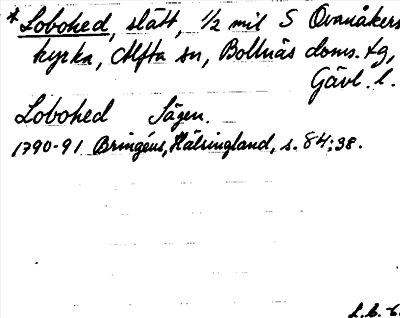 *Lobohed, slått, 1/2 mil S Ovanåkers
kyrka, Alfta sn, Bollnäs doms. tg,
Gävl. l.
Lobohed Sägen.
1790-91 Bringéus, Hälsingland, s. 84:38.